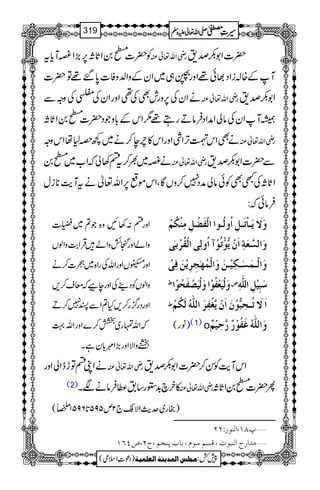 سیرتِ مصطفیٰ صلی اللہ تعالیٰ علیہ وسلم 319
حضرت ابوبکر صدیق رضی اللہ تعالیٰ عنہ کو حضرت مسطح بن اثاثہ پر بڑا غصہ آیا۔ یہ
آپ کے خالہ زاد بھائی تھے اور بچپن ہی میں ان کے والد وفات پا گئے تھے تو حضرت
ابوبکر صدیق رضی اللہ تعالیٰ عنہ نے ان کی پرورش بھی کی تھی اور ان کی مفلسی کی وجہ سے
ہمیشہ آپ ان کی مالی امداد فرماتے رہتے تھے مگر اس کے باوجود حضرت مسطح بن اثاثہ
رضی اللہ تعالیٰ عنہ نے بھی اس تہمت تراشی اور اس کا چرچا کرنے میں کچھ حصہ لیا تھا اس وجہ
سے حضرت ابوبکر صدیق رضی اللہ تعالیٰ عنہ نے غصہ میں بھر کر یہ قسم کھا لی کہ اب میں مسطح بن
اثاثہ کی کبھی بھی کوئی مالی مدد نہیں کروں گا، اس موقع پر اللہ تعالیٰ نے یہ آیت نازل
فرمائی کہ:
وَلَا یَاْتَلِ اُولُوا الْفَضْلِ مِنْکُمْ
وَالسَّعَةِ اَنْ یُّؤْتُوْۤا اُولِی الْقُرْبٰی
وَالْمَسٰکِیْنَ وَالْمُهٰجِرِیْنَ فِیْ
سَبِیْلِ اللّٰهِ ۪ۖ وَلْیَعْفُوْا وَلْیَصْفَحُوْا ؕ
اَلَا تُحِبُّوْنَ اَنْ یَّغْفِرَ اللّٰهُ لَکُمْ ؕ
وَاللّٰهُ غَفُوْرٌ رَّحِیْمٌ o (1) (نور)
اور قسم نہ کھائیں وہ جو تم میں فضیلت
والے اور گنجائش والے ہیں قرابت والوں
اور مسکینوں اور اللہ کی راہ میں ہجرت کرنے
والوں کو دینے کی اور چاہئے کہ معاف کریں
اور درگزر کریں کیا تم اسے پسند نہیں کرتے
کہ اللہ تمہاری بخشش کرے اور اللہ بہت
بخشنے والا اور بڑا مہربان ہے۔
اس آیت کو سن کر حضرت ابوبکر صدیق رضی اللہ تعالیٰ عنہ نے اپنی قسم توڑ ڈالی اور
پھر حضرت مسطح بن اثاثہ رضی اللہ تعالیٰ عنہ کا خرچ بدستور سابق عطا فرمانے لگے۔ (2)
(بخاری حدیث الافک ج ۲ ص ۵۹۵ تا ۵۹۶ ملخصاً)
1......پ۱۸،النور:۲۲
2......مدارج النبوت ، قسم سوم ، باب پنجم ، ج۲،ص۱٦٤
پیش کش: مجلس المدینة العلمیة (دعوتِ اسلامی)